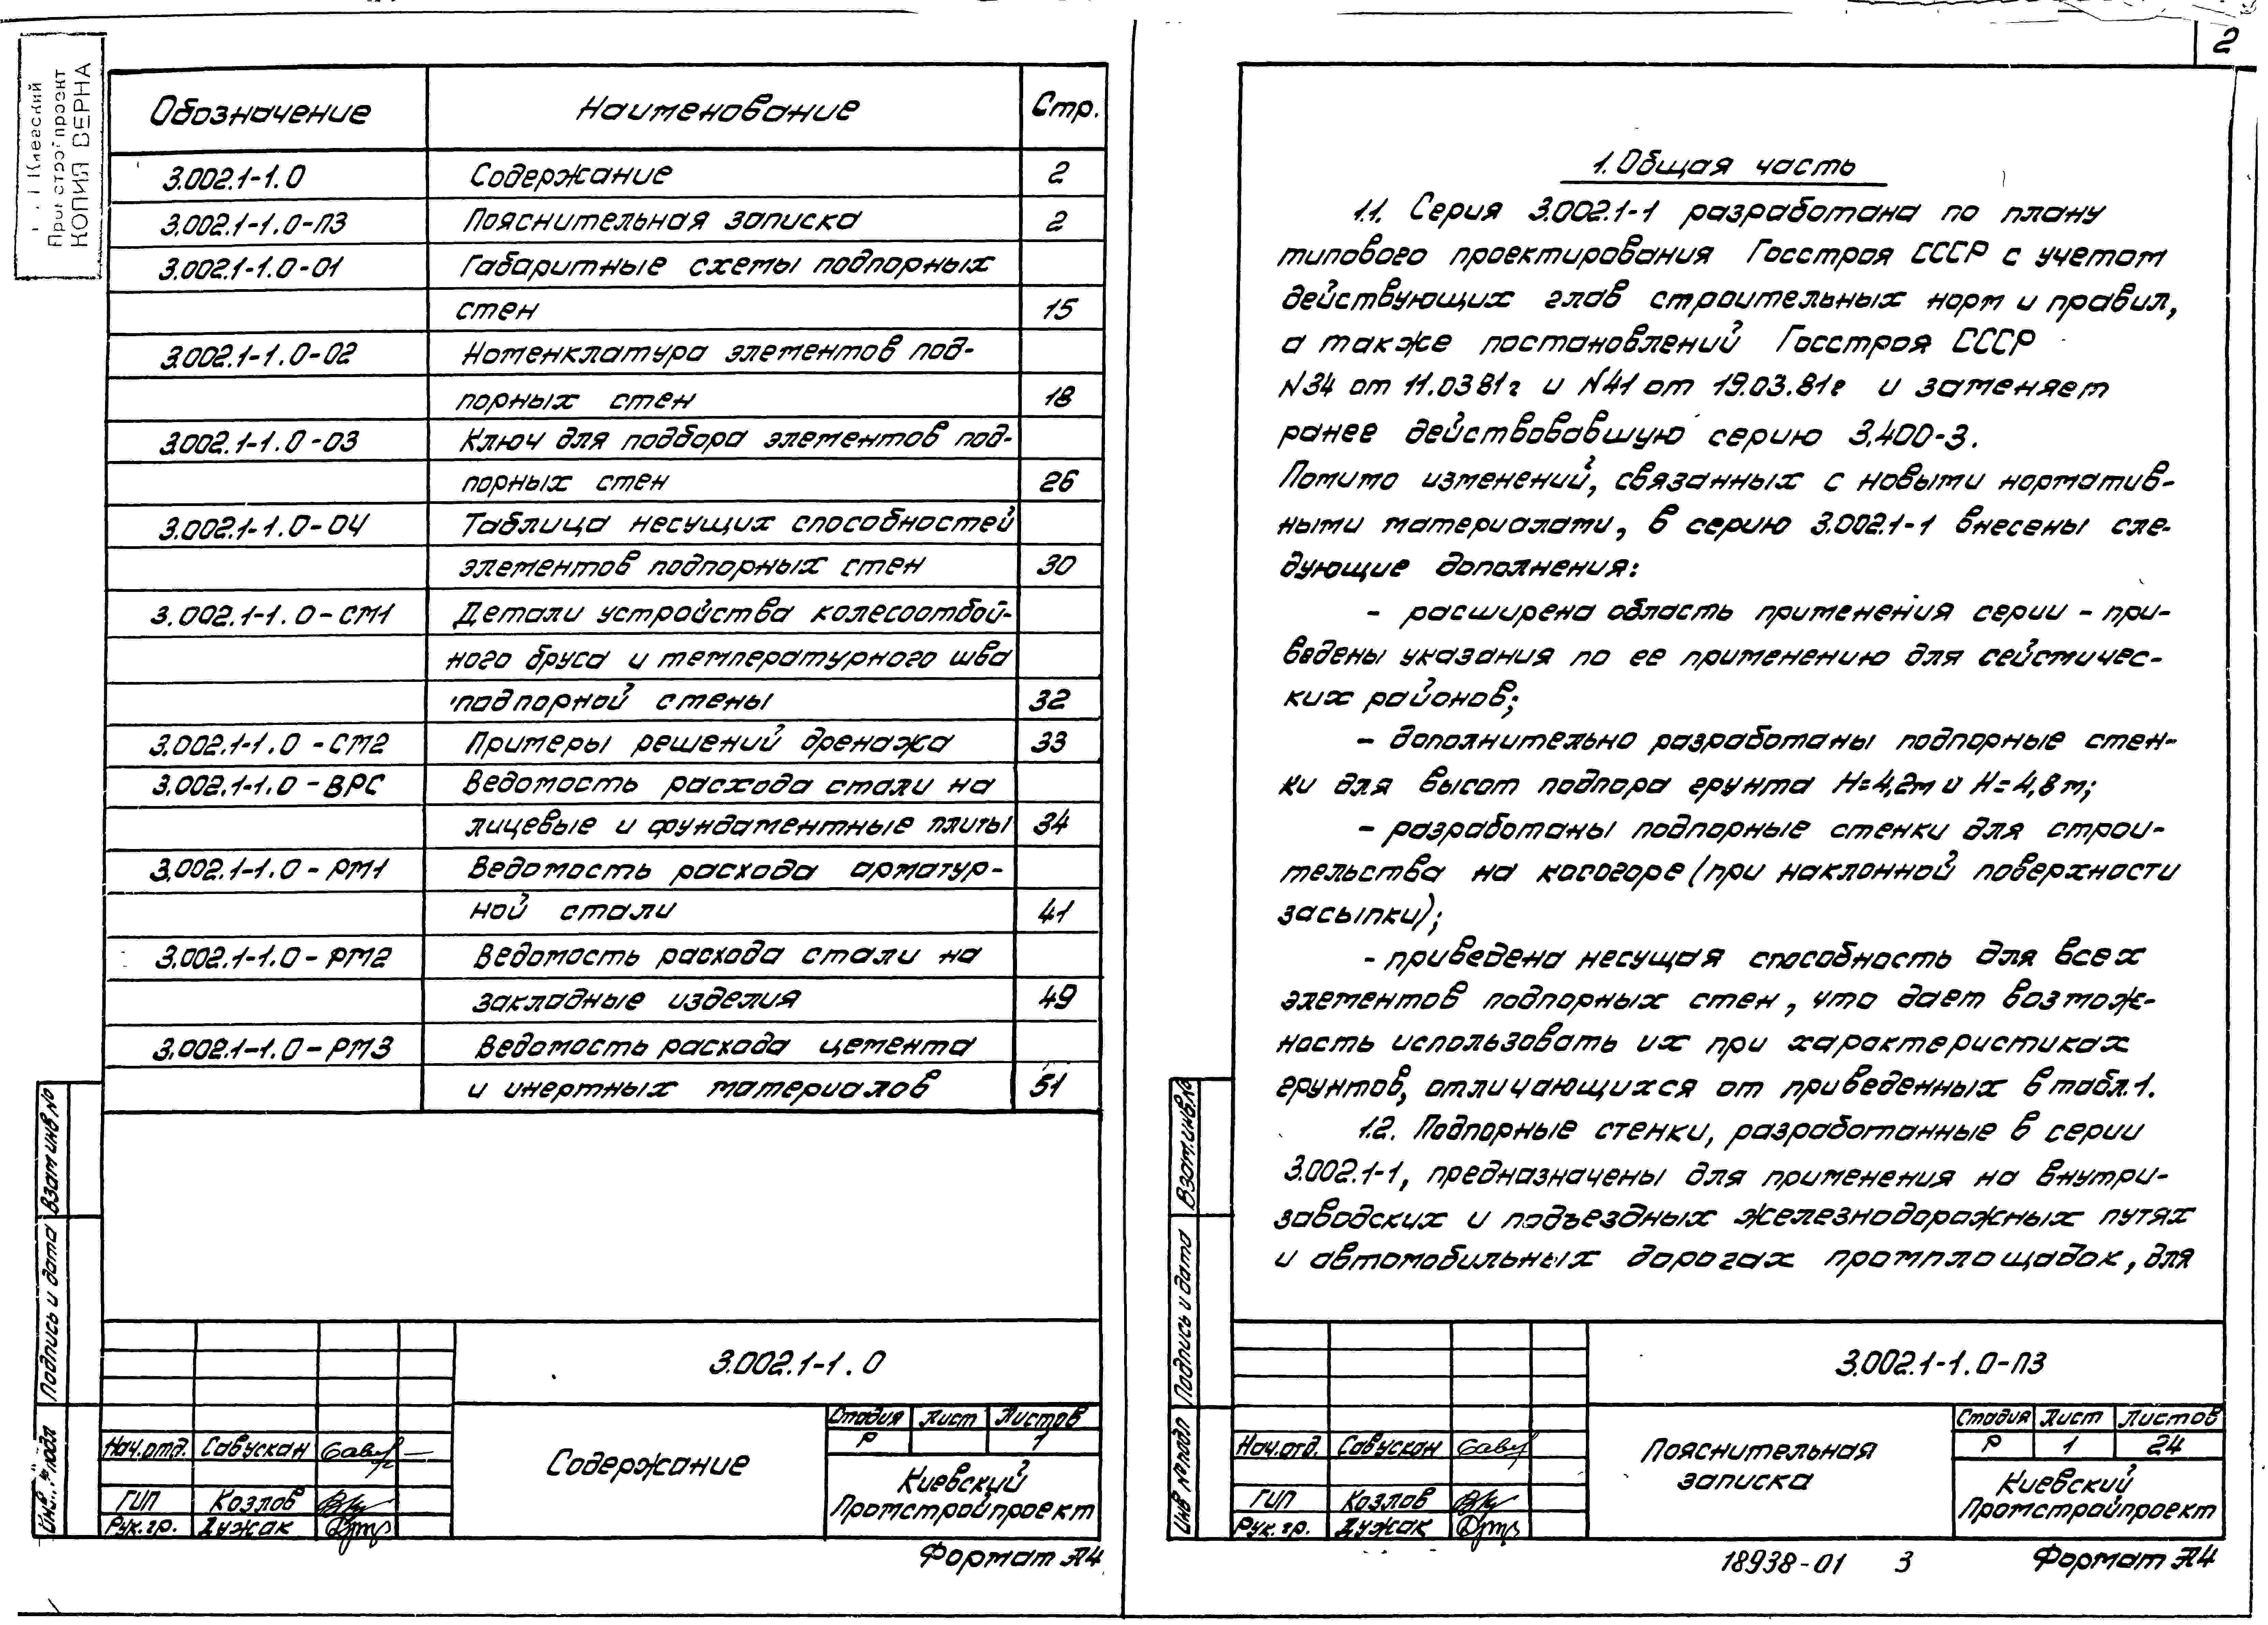 КОПИЯ ВЕРНА
Обозначение Наименование Стр.
3.002.1-1.0 Содержание 2
3.002.1-1.0-ПЗ Пояснительная записка 2
3.002.1-1.0-01 Габаритные схемы подпорных
стен 15
3.002.1-1.0-02 Номенклатура элементов под-
порных стен 18
3.002.1-1.0-03 Ключ для подбора элементов под-
порных стен 26
3.002.1-1.0-04 Таблица несущих способностей
элементов подпорных стен 30
3.002.1-1.0-СМ1 Детали устройства колесоотбой-
ного бруса и температурного шва
подпорной стены 32
3.002.1-1.0-СМ2 Примеры решений дренажа 33
3.002.1-1.0-ВРС Ведомость расхода стали на
лицевые и фундаментные плиты 34
3.002.1-1.0-РМ1 Ведомость расхода арматур-
ной стали 41
3.002.1-1.0-РМ2 Ведомость расхода стали на
закладные изделия 49
3.002.1-1.0-РМ3 Ведомость расхода цемента
и инертных материалов 51
Взам инв №
Подпись и дата
Инв. № подл
3.002.1-1.0
Стадия Лист Листов
Р 1
Содержание
Киевский
Промстройпроект
Нач.отд. Савускан
ГИП Козлов
Рук.гр. Дужак
Формат А4
2
1. Общая часть
1.1. Серия 3.002.1-1 разработана по плану
типового проектирования Госстроя СССР с учетом
действующих глав строительных норм и правил,
а также постановлений Госстроя СССР
N34 от 11.03 81г и N41 от 19.03.81г и заменяет
ранее действовавшую серию 3.400-3.
Помимо изменений, связанных с новыми норматив-
ными материалами, в серию 3.002.1-1 внесены сле-
дующие дополнения:
- расширена область применения серии - при-
ведены указания по ее применению для сейсмичес-
ких районов;
- дополнительно разработаны подпорные стен-
ки для высот подпора грунта H=4,2м и H=4,8м;
- разработаны подпорные стенки для строи-
тельства на косогоре (при наклонной поверхности
засыпки);
- приведена несущая способность для всех
элементов подпорных стен, что дает возмож-
ность использовать их при характеристиках
грунтов, отличающихся от приведенных в табл.1.
1.2. Подпорные стенки, разработанные в серии
3.002.1-1, предназначены для применения на внутри-
заводских и подъездных железнодорожных путях
и автомобильных дорогах промплощадок, для
Взам.инв.№
Подпись и дата
Инв № подл
3.002.1-1.0-ПЗ
Стадия Лист Листов
Р 1 24
Пояснительная
записка
Киевский
Промстройпроект
Нач.отд. Савускан
ГИП Козлов
Рук.гр. Дужак
18938-01 3 Формат А4